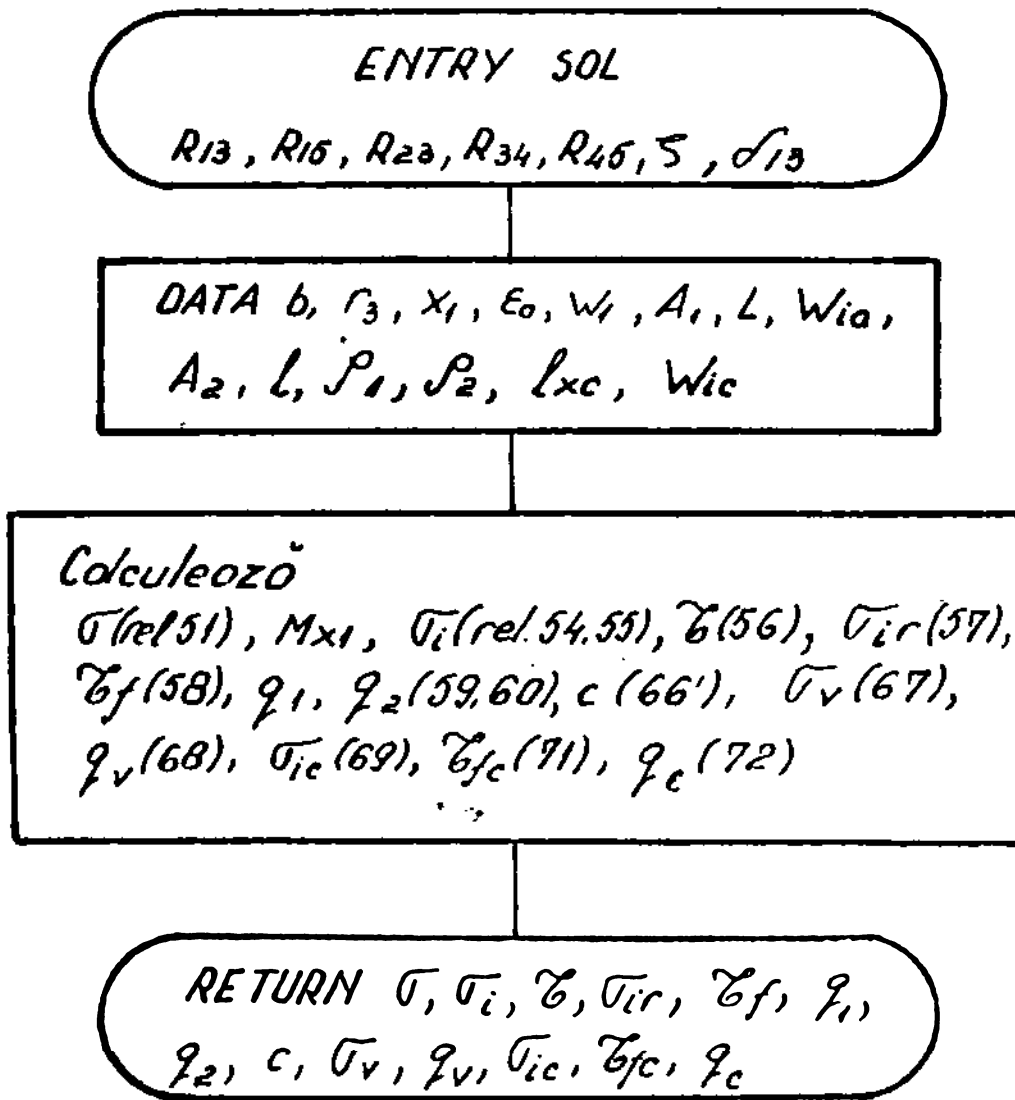 ENTRY SOL
R13, R15, R23, R34, R45, ζ, δ13
DATA b, r3, x1, ε0, w1, A1, L, Wia,
A2, l, ρ1, ρ2, lxc, Wic
Calculează
σ(rel 51), Mx1, σi(rel. 54.55), τ(56), σir(57),
τf(58), q1, q2(59,60), c(66'), σv(67),
qv(68), σic(69), τfc(71), qc(72)
RETURN σ, σi, τ, σir, τf, q1,
q2, c, σv, qv, σic, τfc, qc